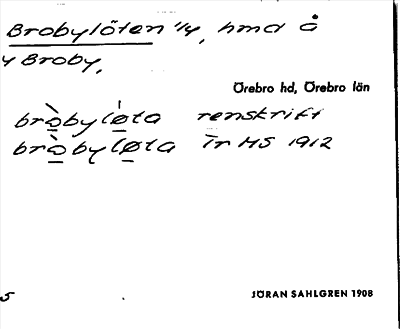 Brobylöten 1/4, hmd å
4 Broby,
Örebro hd, Örebro län
bròbylø̀ta renskrift
bròbyløta īr HS 1912
5
JÖRAN SAHLGREN 1908